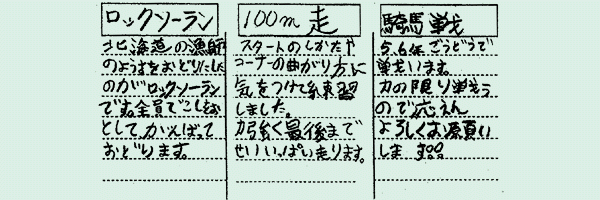 ロックソーラン
北海道の漁師
のようすをおどりにした
のがロックソーラン
です。全員でこしをお
としてがんばって
おどります。
100m走
スタートのしかたや
コーナの曲がり方に
気をつけて練習
しました。
力強く最後まで
せいいっぱい走ります。
騎馬戦
5.6年ごうどうで
戦います。
力の限り戦う
ので応えん
よろしくお願い
します。